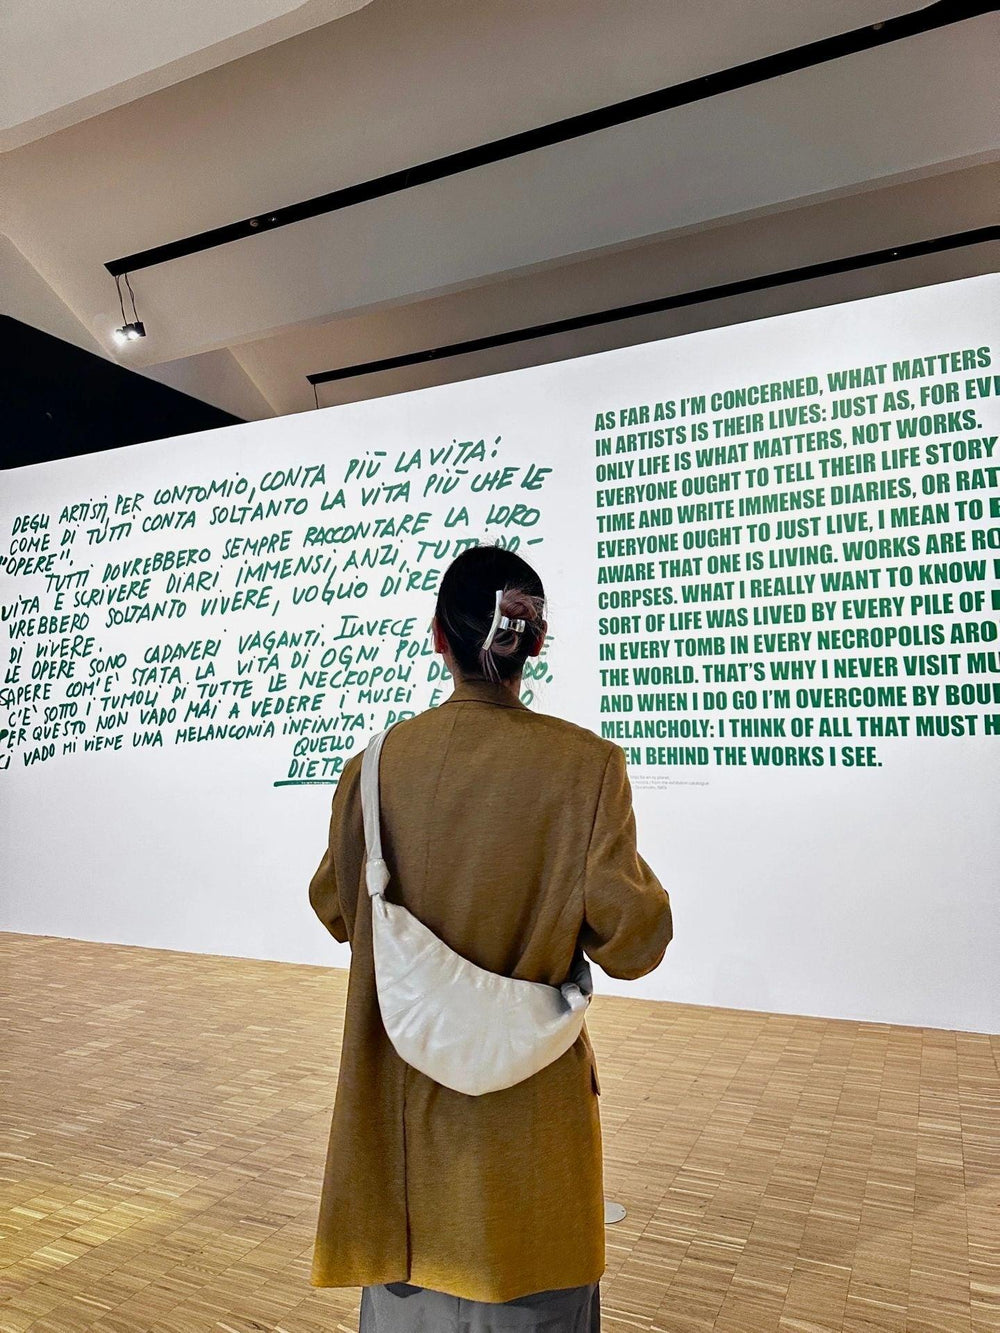 DEGLI ARTISTI, PER CONTOMIO, CONTA PIÙ LA VITA:
COME DI TUTTI CONTA SOLTANTO LA VITA PIÙ CHE LE
"OPERE".
TUTTI DOVREBBERO SEMPRE RACCONTARE LA LORO
VITA E SCRIVERE DIARI IMMENSI, ANZI, TUTTI DO-
VREBBERO SOLTANTO VIVERE, VOGLIO DIRE
DI VIVERE.
LE OPERE SONO CADAVERI VAGANTI. INVECE
SAPERE COM'È STATA LA VITA DI OGNI
C'È SOTTO I TUMOLI DI TUTTE LE NECROPOLI DO.
PER QUESTO NON VADO MAI A VEDERE I MUSEI E
CI VADO MI VIENE UNA MELANCONIA INFINITA:
QUELLO
DIETRO
AS FAR AS I'M CONCERNED, WHAT MATTERS
IN ARTISTS IS THEIR LIVES: JUST AS, FOR EV
ONLY LIFE IS WHAT MATTERS, NOT WORKS.
EVERYONE OUGHT TO TELL THEIR LIFE STORY
TIME AND WRITE IMMENSE DIARIES, OR RAT
EVERYONE OUGHT TO JUST LIVE, I MEAN TO
AWARE THAT ONE IS LIVING. WORKS ARE RO
CORPSES. WHAT I REALLY WANT TO KNOW
SORT OF LIFE WAS LIVED BY EVERY PILE OF
IN EVERY TOMB IN EVERY NECROPOLIS ARO
THE WORLD. THAT'S WHY I NEVER VISIT MU
AND WHEN I DO GO I'M OVERCOME BY BOU
MELANCHOLY: I THINK OF ALL THAT MUST H
EN BEHIND THE WORKS I SEE.